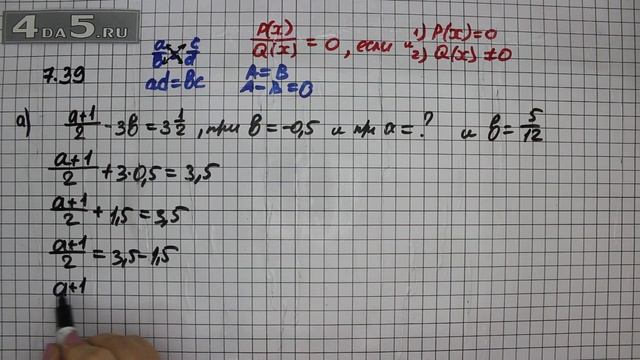 4DA5.RU
7.39
a/b c/d
ad=bc
A=B
A-B=0
P(x)/Q(x) = 0, если 1) P(x)=0
и 2) Q(x)≠0
а) a+1/2 - 3b = 3 1/2, при b = -0,5 и при a = ? и b = 5/12
a+1/2 + 3·0,5 = 3,5
a+1/2 + 1,5 = 3,5
a+1/2 = 3,5-1,5
a+1